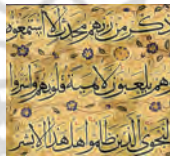 ذكر من ربهم محدث إلا استمعوه
وهم يلعبون لاهية قلوبهم وأسروا
النجوى الذين ظلموا هل هذا إلا بشر